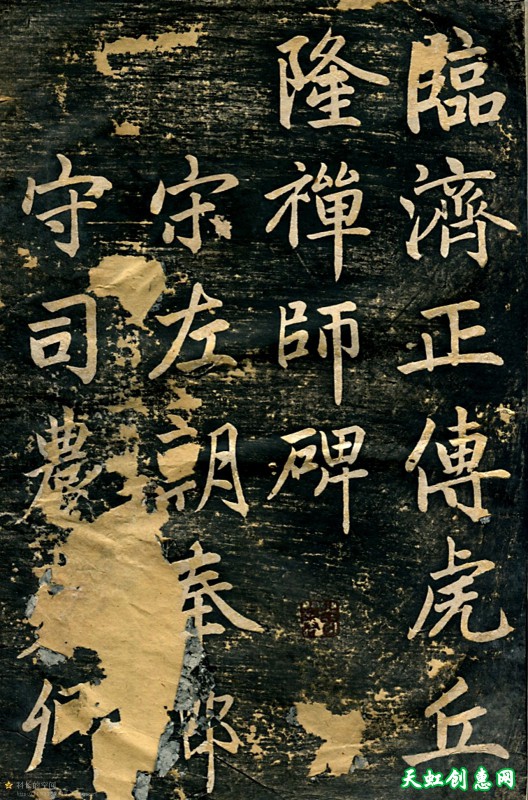 臨濟正傳虎丘
隆禪師碑
宋左朝奉郎
守司農卿
天虹创惠网